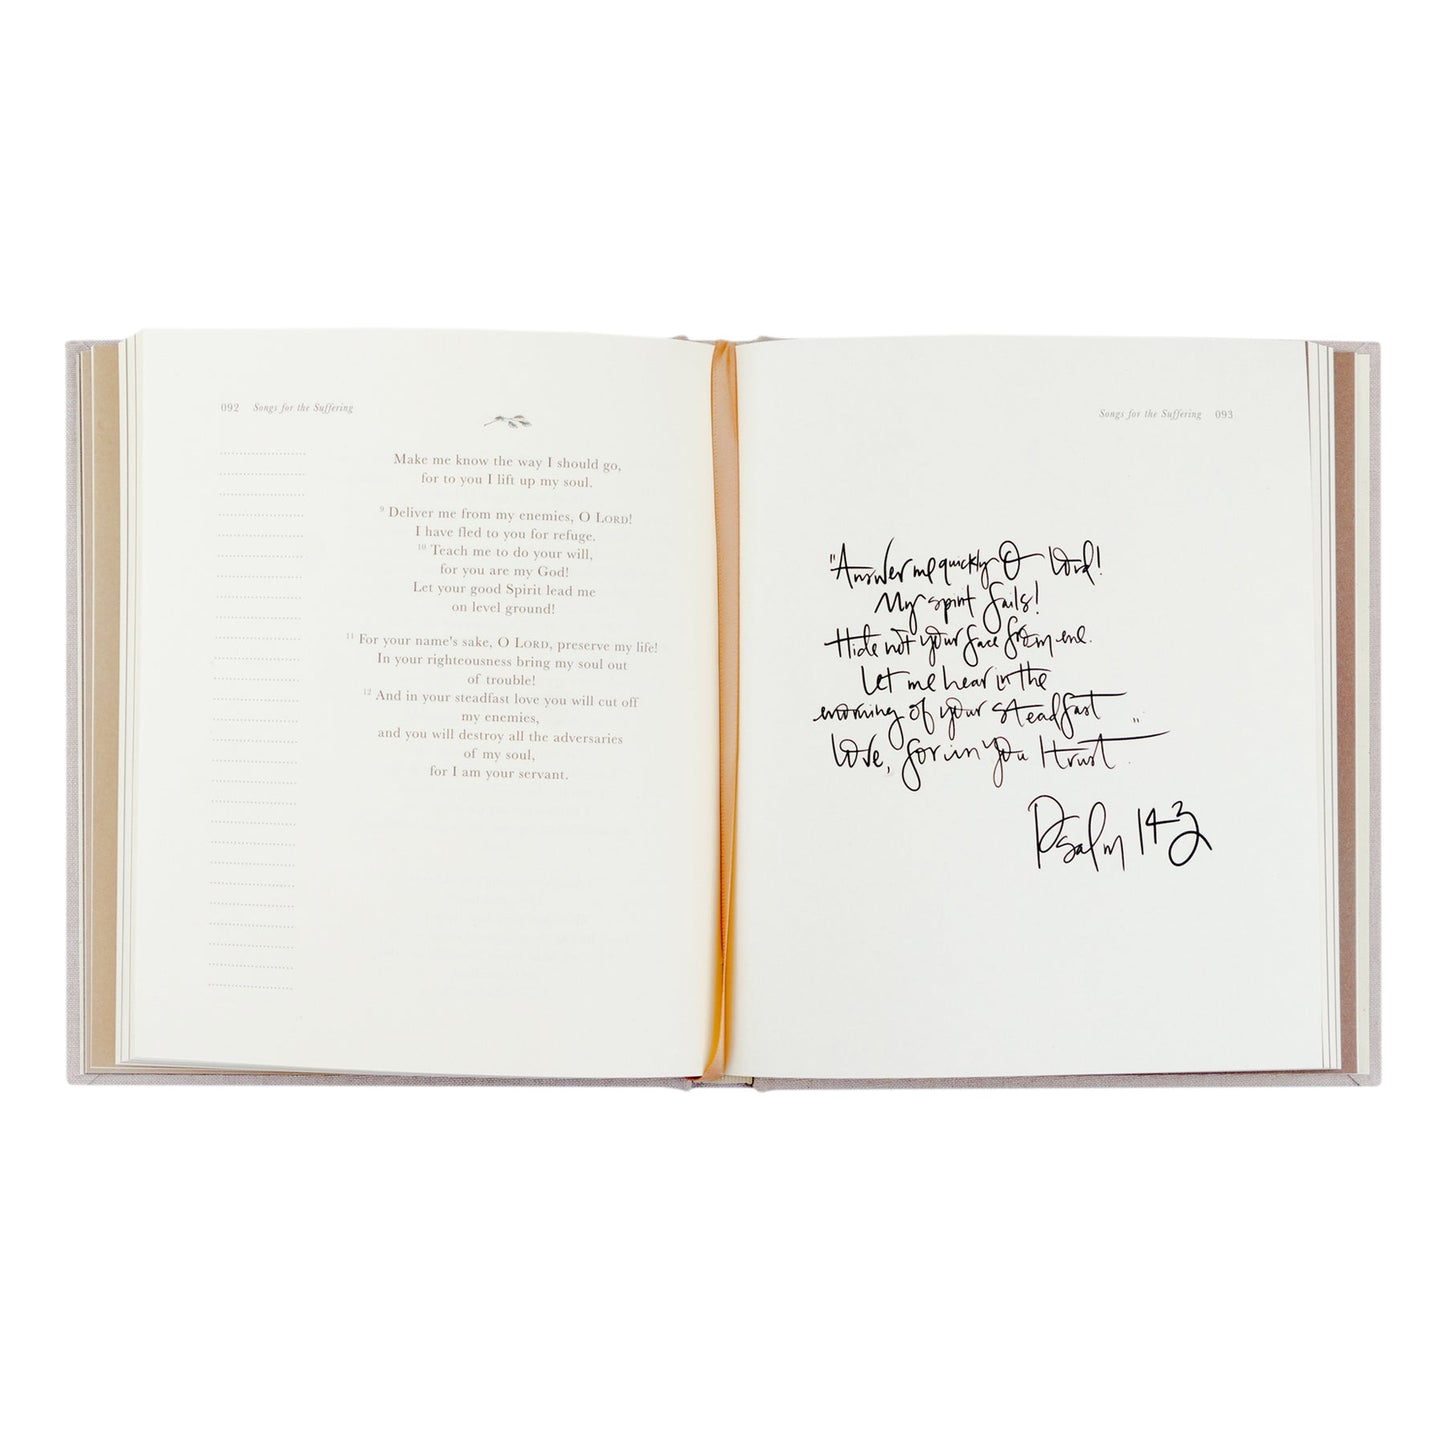 092 Songs for the Suffering
Make me know the way I should go,
for to you I lift up my soul.
9 Deliver me from my enemies, O LORD!
I have fled to you for refuge.
10 Teach me to do your will,
for you are my God!
Let your good Spirit lead me
on level ground!
11 For your name's sake, O LORD, preserve my life!
In your righteousness bring my soul out
of trouble!
12 And in your steadfast love you will cut off
my enemies,
and you will destroy all the adversaries
of my soul,
for I am your servant.
Songs for the Suffering 093
"Answer me quickly O Lord!
My spirit fails!
Hide not your face from me.
Let me hear in the
morning of your steadfast
love, for in you I trust."
Psalm 143